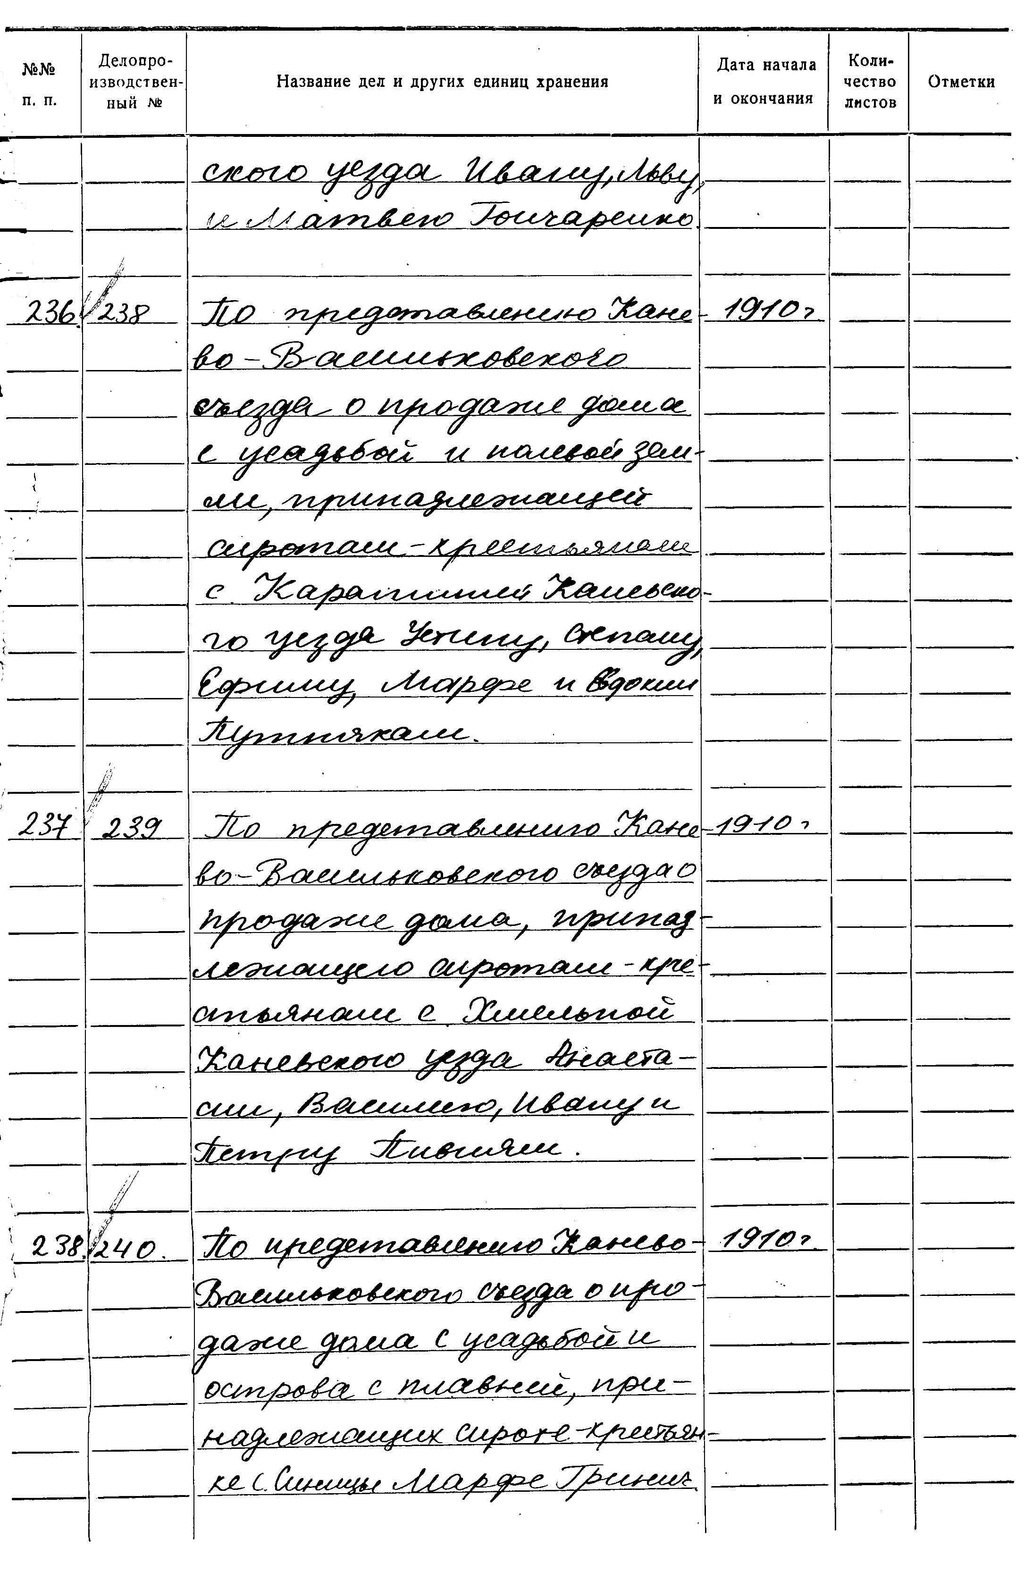 №№ п. п. Делопро-изводствен-ный № Название дел и других единиц хранения Дата начала и окончания Коли-чество листов Отметки
ского уезда Ивану, Льву,
и Матвею Гончаренко.
236. 238 По представлению Кане- 1910 г
во-Васильковского
съезда о продаже дома
с усадьбой и полевой зем-
ли, принадлежащей
сиротам-крестьянам
с. Карапышей Каневско-
го уезда Устину, Степану,
Ефиму, Марфе и Евдокии
Путнякам.
237 239 По представлению Кане- 1910 г
во-Васильковского съезда о
продаже дома, принад-
лежащего сиротам-кре-
стьянам с. Хмельной
Каневского уезда Анаста-
сии, Василию, Ивану и
Петру Пивням.
238. 240. По представлению Канево- 1910 г.
Васильковского съезда о про-
даже дома с усадьбой и
острова с плавней, при-
надлежащих сироте-крестьян-
ке с. Синицы Марфе Гринич.